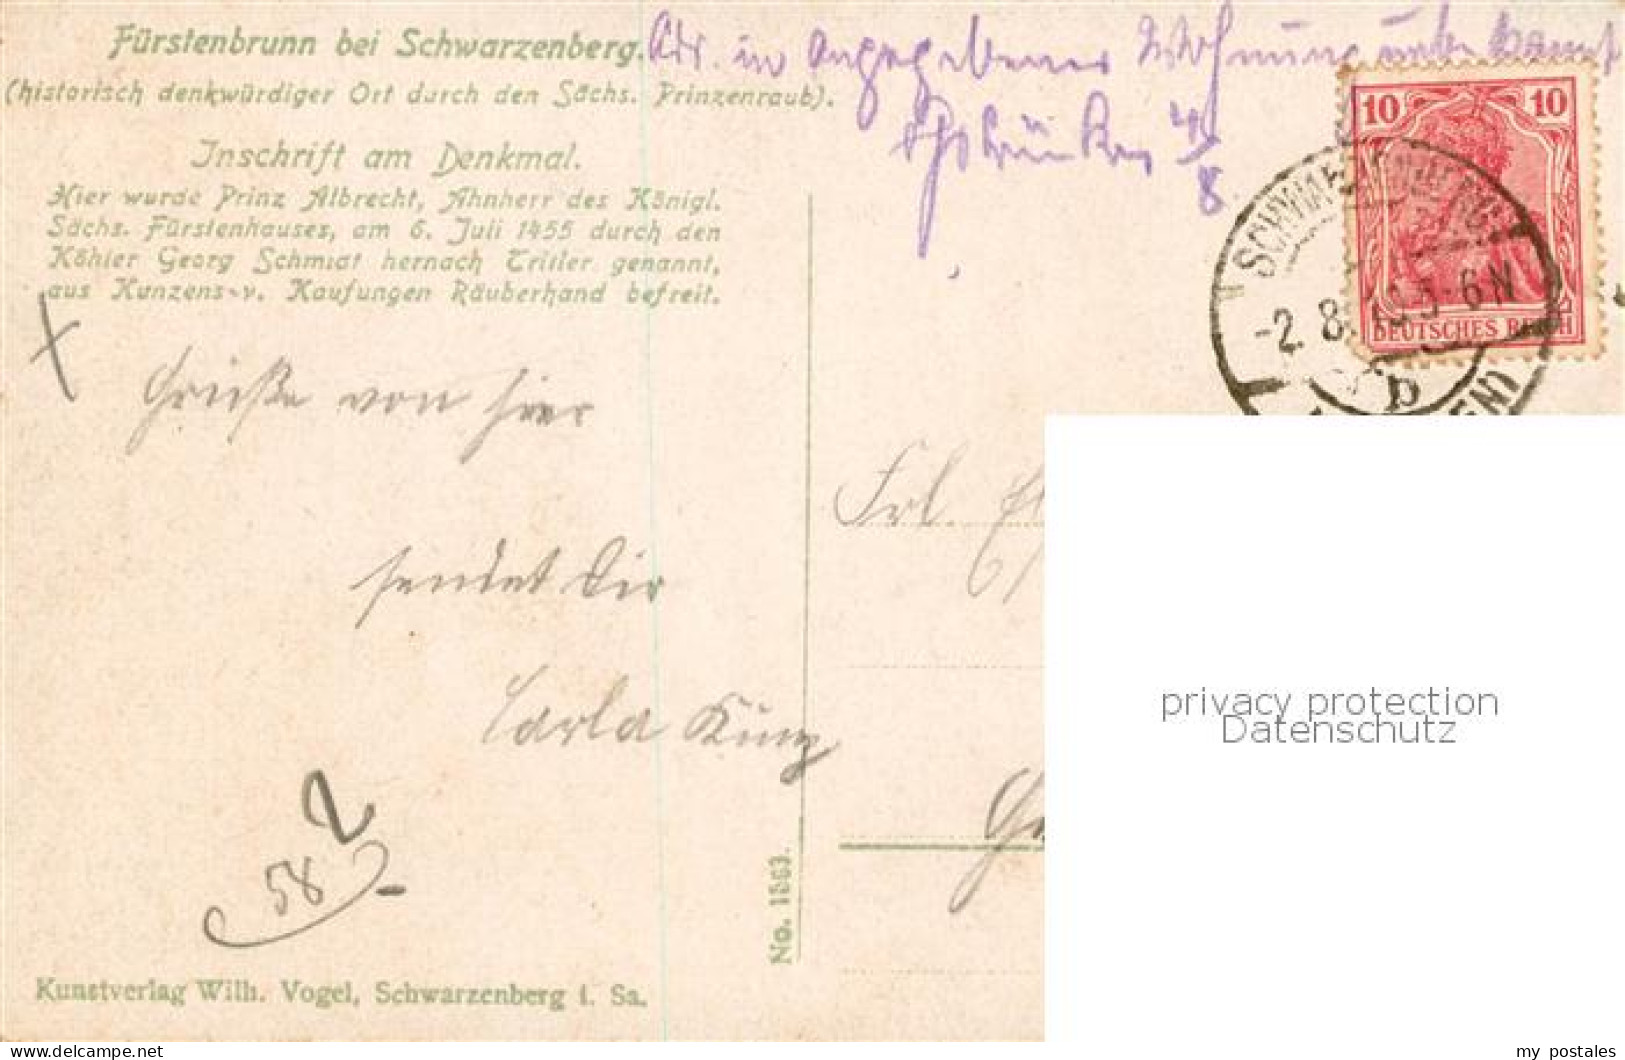 Fürstenbrunn bei Schwarzenberg.
(historisch denkwürdiger Ort durch den Sächs. Prinzenraub).
Adr. in angegebener Wohnung unbekannt
4/8
Inschrift am Denkmal.
Hier wurde Prinz Albrecht, Ahnherr des Königl.
Sächs. Fürstenhauses, am 6. Juli 1455 durch den
Köhler Georg Schmidt hernach Tritler genannt,
aus Kunzens v. Kaufungen Räuberhand befreit.
10 10
DEUTSCHES REICH
-2. 8. 5-6N
b
Grüße von hier
sendet Dir
Carla Kunz
Frl.
2
58
No. 1863.
Kunstverlag Wilh. Vogel, Schwarzenberg i. Sa.
privacy protection
Datenschutz
my postales
https://www.delcampe.net